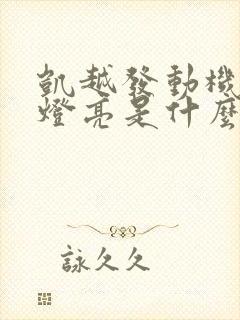 凱越發動機
燈亮是什麼
詠久久